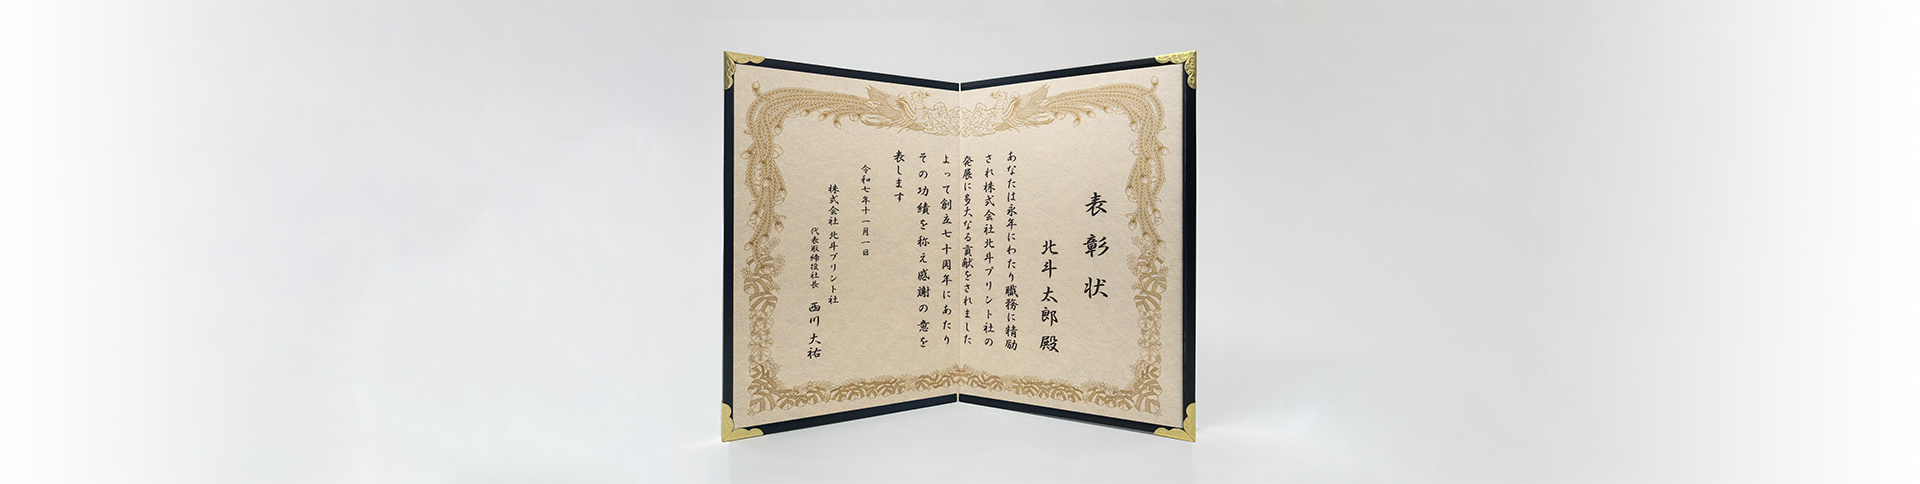 表彰状
北斗太郎殿
あなたは永年にわたり職務に精励
され株式会社北斗プリント社の
発展に多大なる貢献をされました
よって創立七十周年にあたり
その功績を称え感謝の意を
表します
令和七年十一月一日
株式会社 北斗プリント社
代表取締役社長 西川 大祐